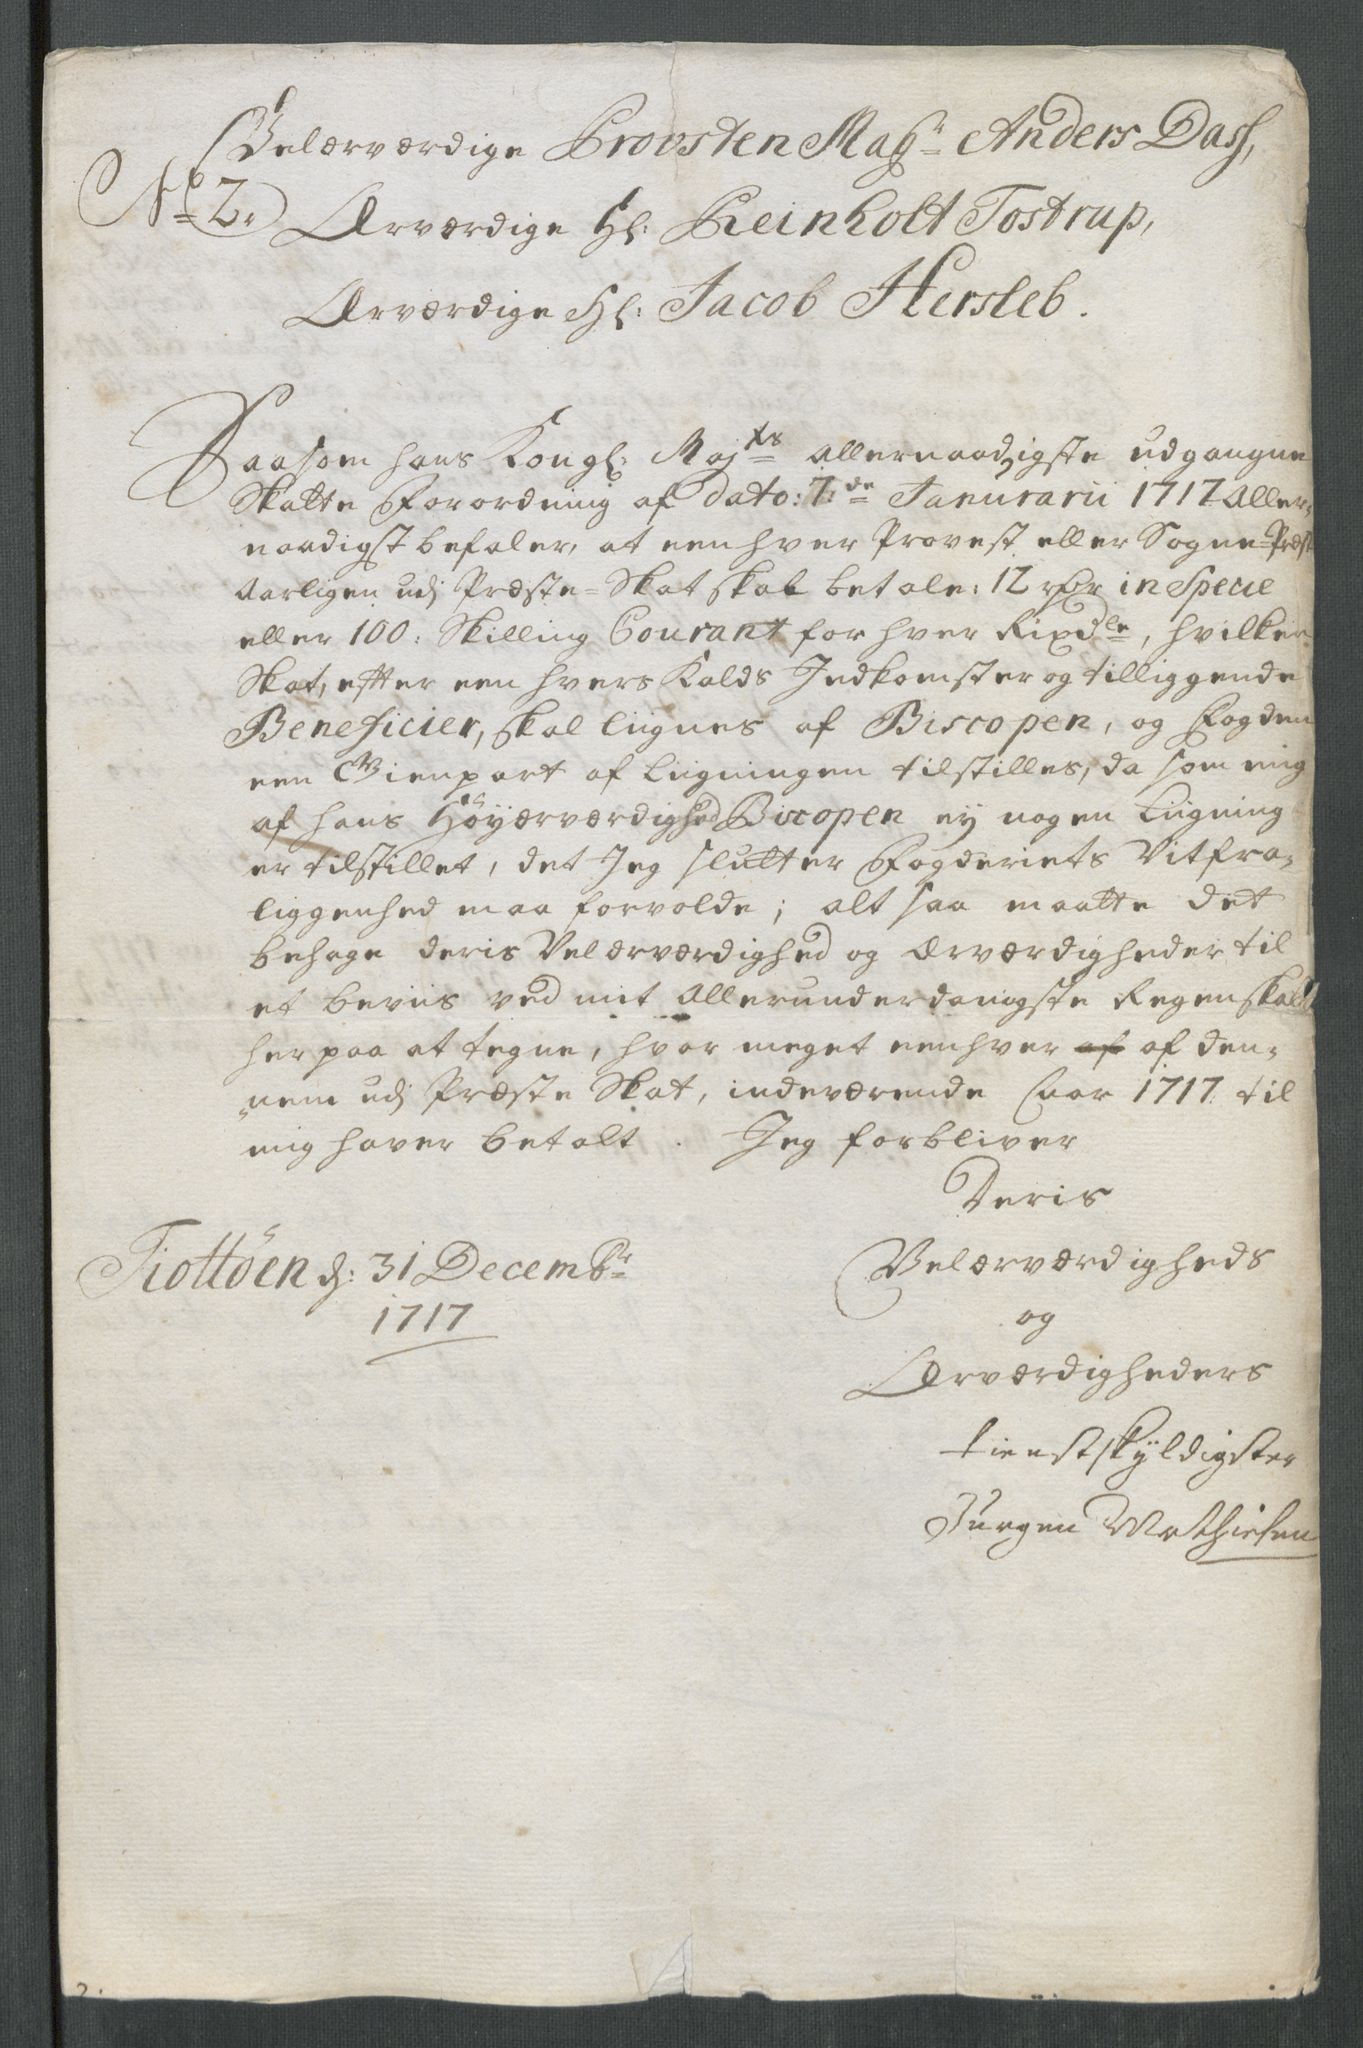 Velærværdige Provsten Mag<sup>r</sup> Anders Dass,
No 2. Ærværdige Hr: Reinholt Tostrup,
Ærværdige Hr: Jacob Hersleb.
Saasom hans Kongl: Maj<sup>ts</sup> allernaadigste udgangne
Skatte Forordning af dato: 7<sup>de</sup> Janurarii 1717 aller-
naadigst befaler, at een hver Provest eller Sogne-Præst
Aarligen udj Præste-Skat skal betale: 12 rdr in Specie
eller 100: Skilling Courant for hver Rixd<sup>le</sup>, hvilken
Skat, efter een hvers Kalds Indkomster og tilliggende
Beneficier, skal liignes af Biscopen, og Fogden
een Gienpart af Liigningen tilstilles, da som mig
af hans Höyærværdighed Biscopen ey nogen Liigning
er tilstillet, det Jeg slutter Fogderiets Vitfra-
liggenhed maa forvolde; alt saa maatte det
behage deris Velærværdighed og Ærværdigheder til
et beviis ved mit allerunderdanigste Regenskab
her paa at tegne, hvor meget eenhver af af den-
nem udj Præste Skat, indeværende Aar 1717 til
mig haver betalt. Jeg forbliver
Deris
Tiottöen d: 31 Decemb<sup>r</sup>
1717
Velærværdigheds
og
Ærværdigheders
tienstskyldigster
Jurgen Mathiesen
2.